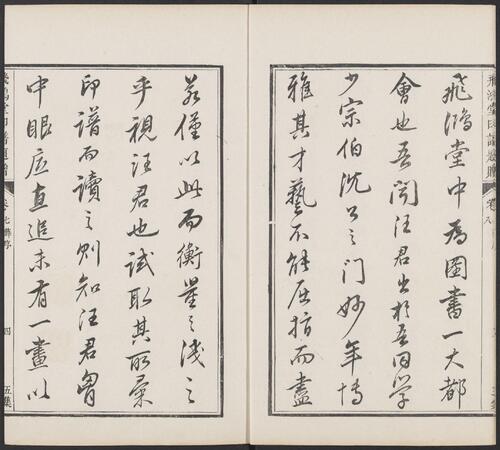 飛鴻堂中為圖書一大都
會也吾聞汪君出於吾同學
少宗伯沈公之門妙年博
雅其才藝不能屈指而盡
若僅以此而衡量之淺之
乎視汪君也試取其所彙
印譜而讀之則知汪君胷
中眼底直追未有一畫以
飛鴻堂印譜題贈
四
五集